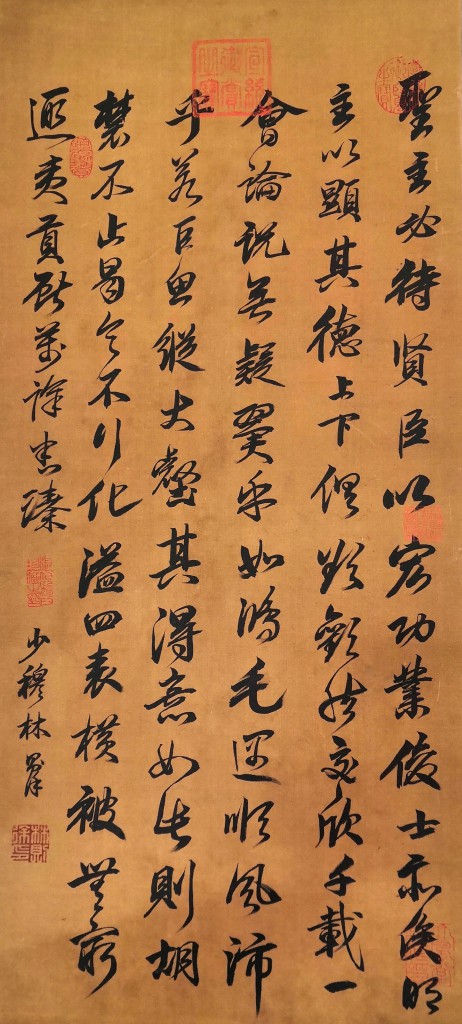 聖主必待賢臣以宏功業俊士亦俟明
主以顯其德上下俱欲歡然交欣千載一
會論說無疑翼乎如鴻毛遇順風沛
乎若巨魚縱大壑其得意如此則胡
禁不止曷令不行化溢四表橫被無窮
遐夷貢獻萬祥悉臻
少穆林則徐
林則徐印